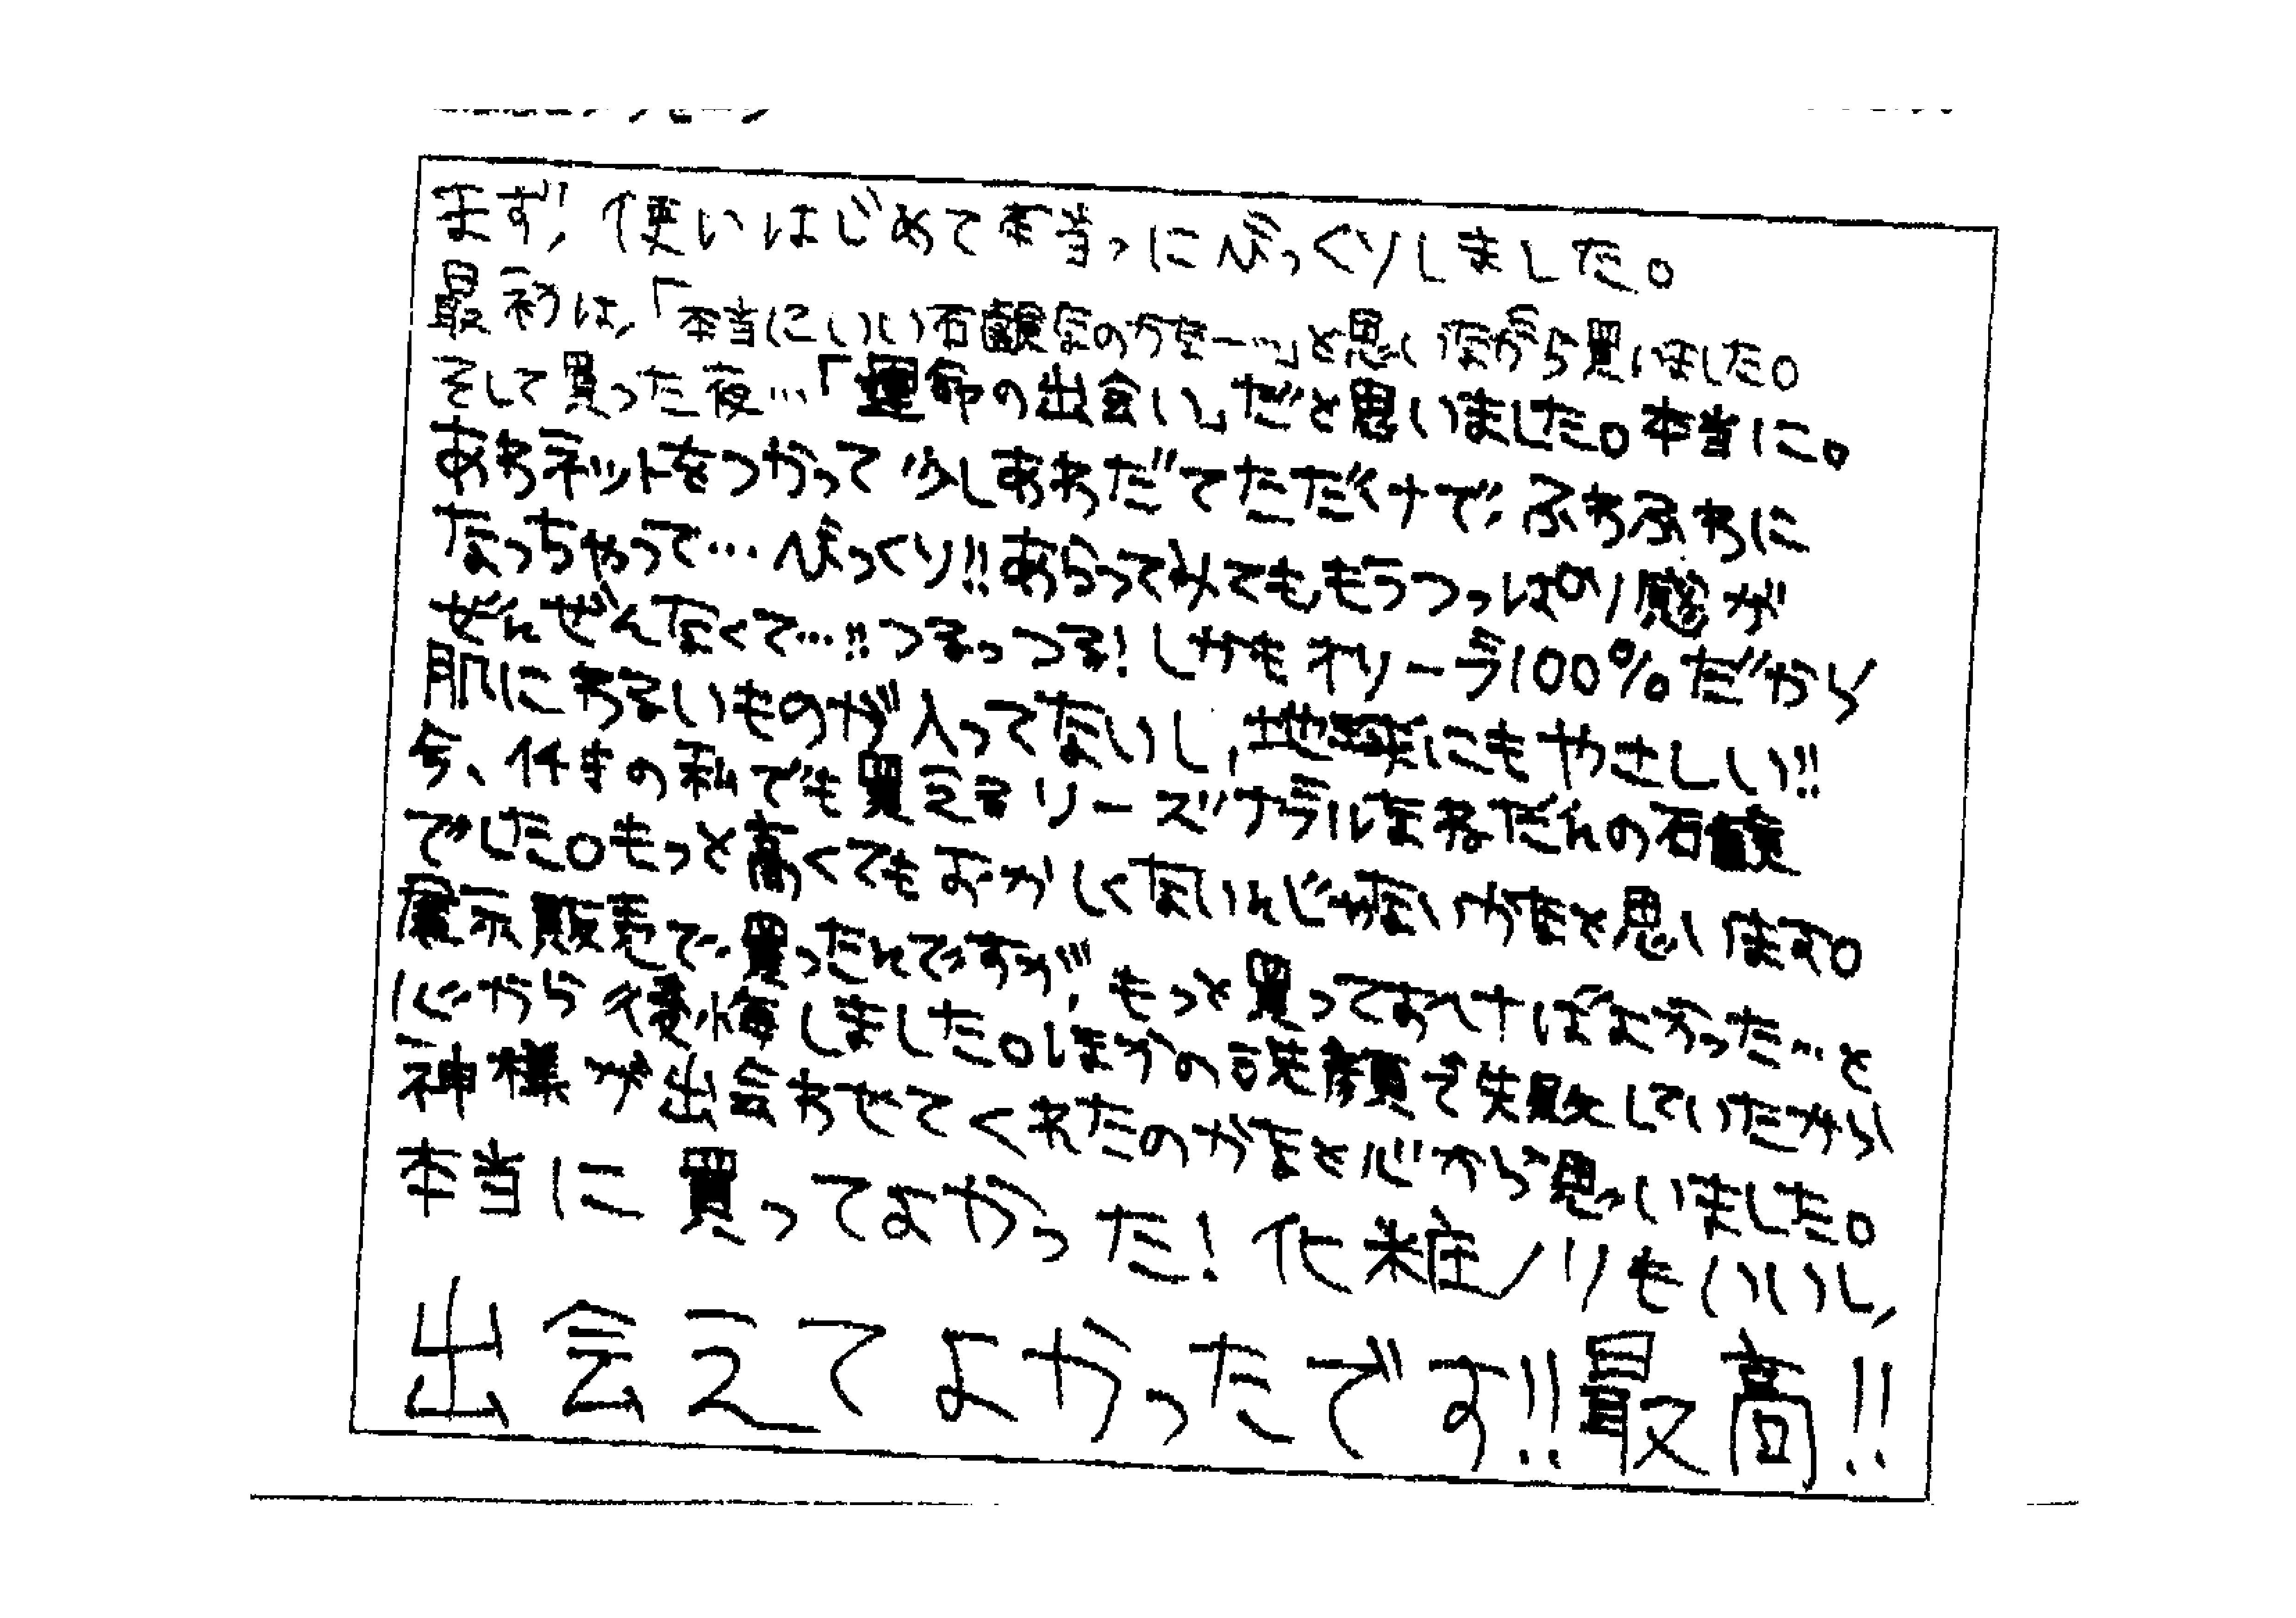 まず、使いはじめて本当っにびっくりしました。
最初は、「本当にいい石鹸なのかなー…」と思いながら買いました。
そして買った夜…「運命の出会い」だと思いました。本当に。
あわネットをつかって少しあわだてただけで、ふわふわに
なっちゃって…びっくり!!あらってみてももうつっぱり感が
ぜんぜんなくて…!!つるっつる!しかもオリーブ100%だから
肌にわるいものが入ってないし、地球にもやさしい!!
今、14才の私でも買えるリーズナブルなねだんの石鹸
でした。もっと高くてもおかしくないんじゃないかなと思います。
展示販売で買ったんですが、もっと買っておけばよかった…と
心から後悔しました。ほかの洗顔で失敗していたから
神様が出会わせてくれたのかなと心から思いました。
本当に買ってよかった!化粧ノリもいいし、
出会えてよかったです!!最高!!